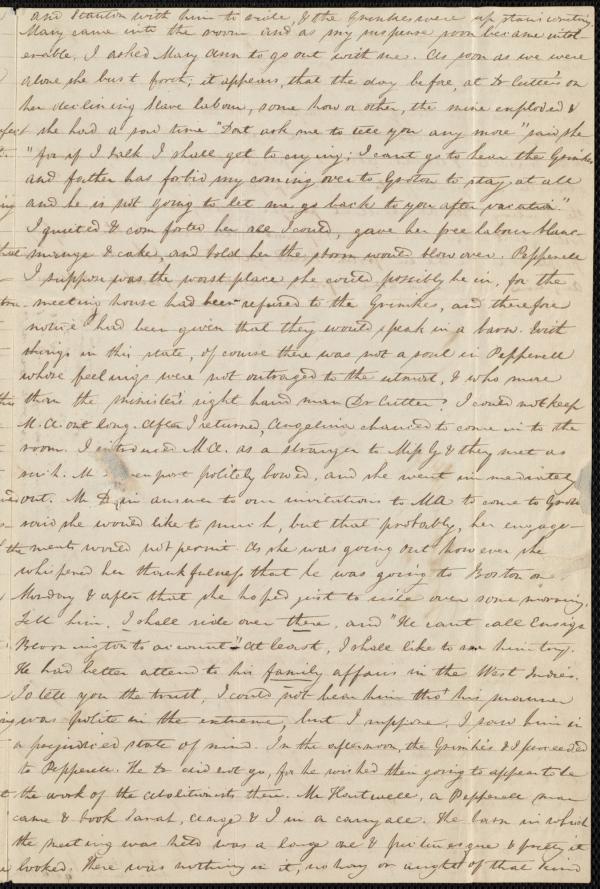 and Stanton with him to ride, & the Grimkes were up stairs writing.
Mary came into the room and as my suspense soon became intol-
erable, I asked Mary Ann to go out with me. As soon as we were
alone she bust forth; it appears, that the day before, at Dr Cutter's on
her declining slave labour, some how or other, the mine exploded &
she had a sad time "Dont ask me to tell you any more" said she
"for if I talk I shall get to crying; I cant go to hear the Grimkes
and father has forbid my coming over to Groton to stay at all
and he is not going to let me go back to you after vacation."
I quieted & comforted her all I could, gave her free labour blanc-
mange & cake, and told her the storm would blow over. Pepperell
I suppose was the worst place she could possibly be in, for the
meeting house had been refused to the Grimkes, and therefore
notice had been given that they would speak in a barn. With
things in this state, of course there was not a soul in Pepperell
whose feelings were not outraged to the utmost, & who more
than the minister's right hand man Dr Cutter? I could not keep
M. A. out long. After I returned, Angelina chanced to come in to the
room. I introduced M.A. as a stranger to Miss G & they met as
such. M politely bowed, and she went immediately
out. Mr D, in answer to our invitations to MA to come to Groton
said she would like to much, but that probably, her engage-
ments would not permit. As she was going out however she
whispered her thankfulness that he was going to Boston on
Monday & after that she hoped just to ride over some morning.
Tell him, I shall ride over there, and "He cant call Ensign
to account" At least, I shall like to see him try.
He had better attend to his family affairs in the West Indies.
To tell you the truth, I could not bear him tho' his manner
was polite in the extreme, but I suppose, I saw him in
a prejudiced state of mind. In the afternoon, the Grimkés & I proceeded
to Pepperell. The Dr did not go, for he wished their going to appear to be
the work of the abolitionists there. Mr Hartwell, a Pepperell man
came & took Sarah, & I in a carryall. The barn in which
the meeting was held was a large one & picturesque & pretty it
looked. There was nothing in it, no hay or aught of that kind